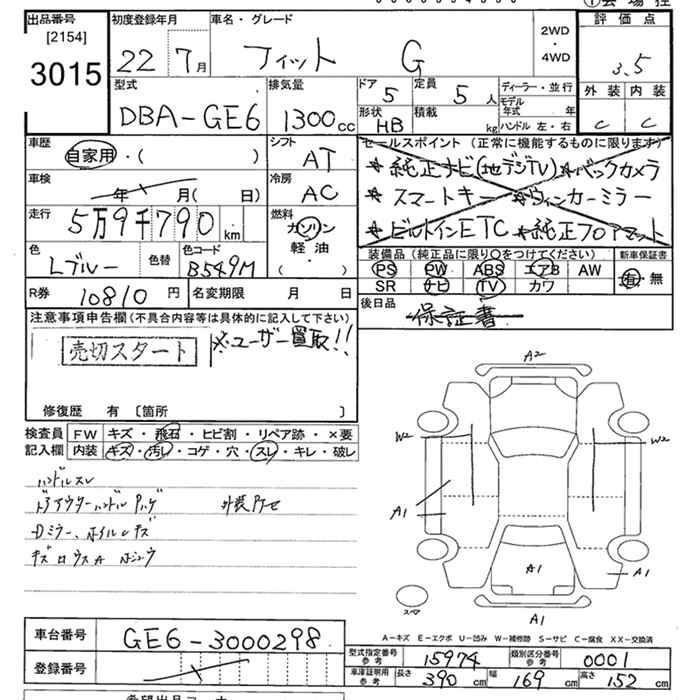 出品番号
[2154]
3015
初度登録年月
22年7月
車名・グレード
フィット G
2WD
・
4WD
評価点
3.5
外装 内装
C C
型式
DBA-GE6
排気量
1300cc
ドア
5
定員
5人
形状
HB
積載
kg
ディーラー・並行
モデル
年式 年
ハンドル 左・右
車歴
自家用・( )
シフト
AT
車検
年 月( 日)
冷房
AC
走行
5万9千790km
燃料
ガソリン
軽油
・( )
色
Lブルー
色替
色コード
B549M
R券
10810円
名変期限 月 日
セールスポイント (正常に機能するものに限ります)
★純正ナビ(地デジTV)★バックカメラ
★スマートキー ★ウィンカーミラー
★ビルトインETC ★純正フロアマット
装備品 (純正品に限り○をつけてください)
PS PW ABS エアB AW
SR ナビ TV カワ
新車保証書
有・無
後日品
保証書
注意事項申告欄(不具合内容等は具体的に記入して下さい)
売切スタート
※ユーザー買取!!
修復歴 有 〔箇所 〕
検査員
記入欄
FW キズ・飛石・ヒビ割・リペア跡・×要
内装 キズ・汚レ・コゲ・穴・スレ・キレ・破レ
ハンドルスレ
ドアアウターハンドル
Dミラー、ホイルキズ
A2
W2
W2
A1
A1
A1
A1
スペア
A-キズ E-エクボ U-凹み W-補修跡 S-サビ C-腐食 XX-交換済
車台番号
GE6-3000298
登録番号
型式指定番号
参考
15974
類別区分番号
参考
0001
車庫証明用
参考
長さ 390cm 幅 169cm 高さ 152cm